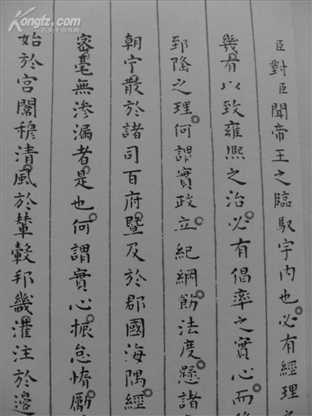 Kongfz.com
臣對臣聞帝王之臨馭宇內也必有經理之
幾有以致雍熙之治必有倡率之實心而
郅隆之理何謂實政立紀綱飭法度懸諸
朝宁散於諸司百府暨及於郡國海隅經
密毫無滲漏者是也何謂實心振怠惰勵
始於宮閫穆清風於輦轂邦畿灌注於邊